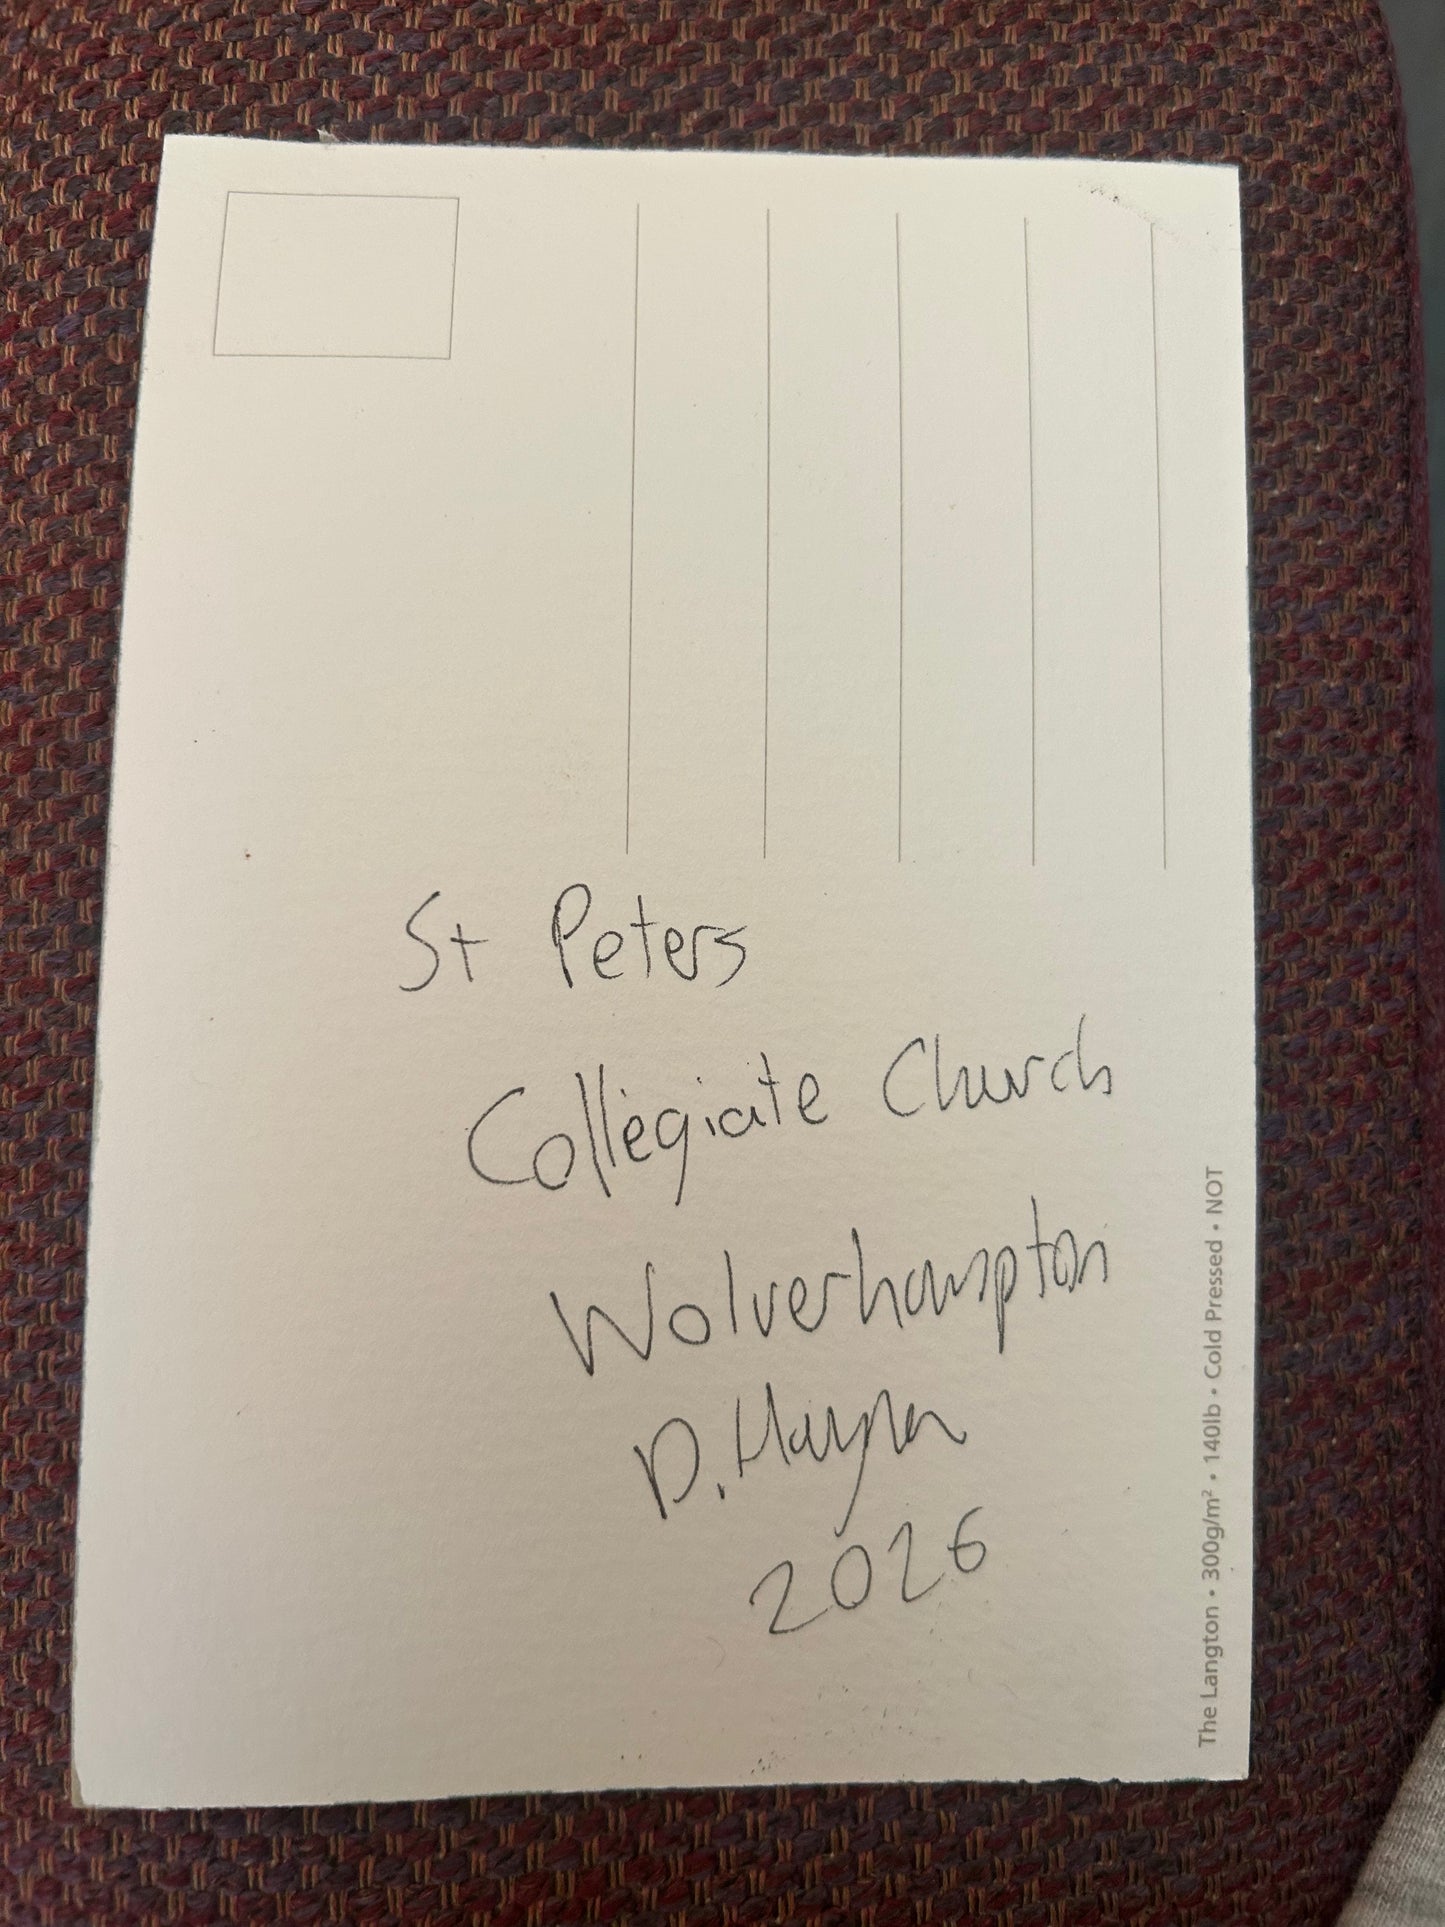 St Peters
Collegiate Church
Wolverhampton
D.
2026
The Langton • 300g/m² • 140lb • Cold Pressed • NOT